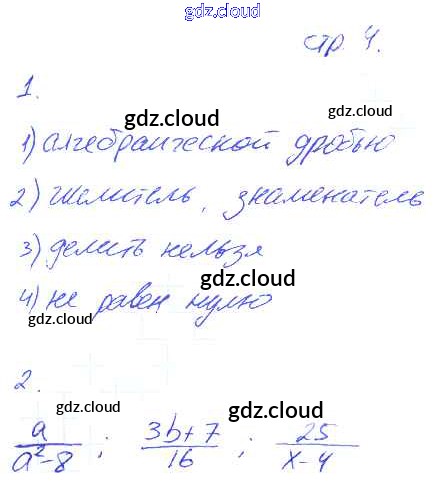 gdz.cloud
стр. 4.
gdz.cloud
1.
gdz.cloud
1) алгебраической дробью
gdz.cloud
2) числитель, знаменатель
3) делить нельзя
gdz.cloud
4) не равен нулю
gdz.cloud
2.
gdz.cloud gdz.cloud
a/(a²-8) ; (3b+7)/16 ; 25/(x-4)
gdz.cloud